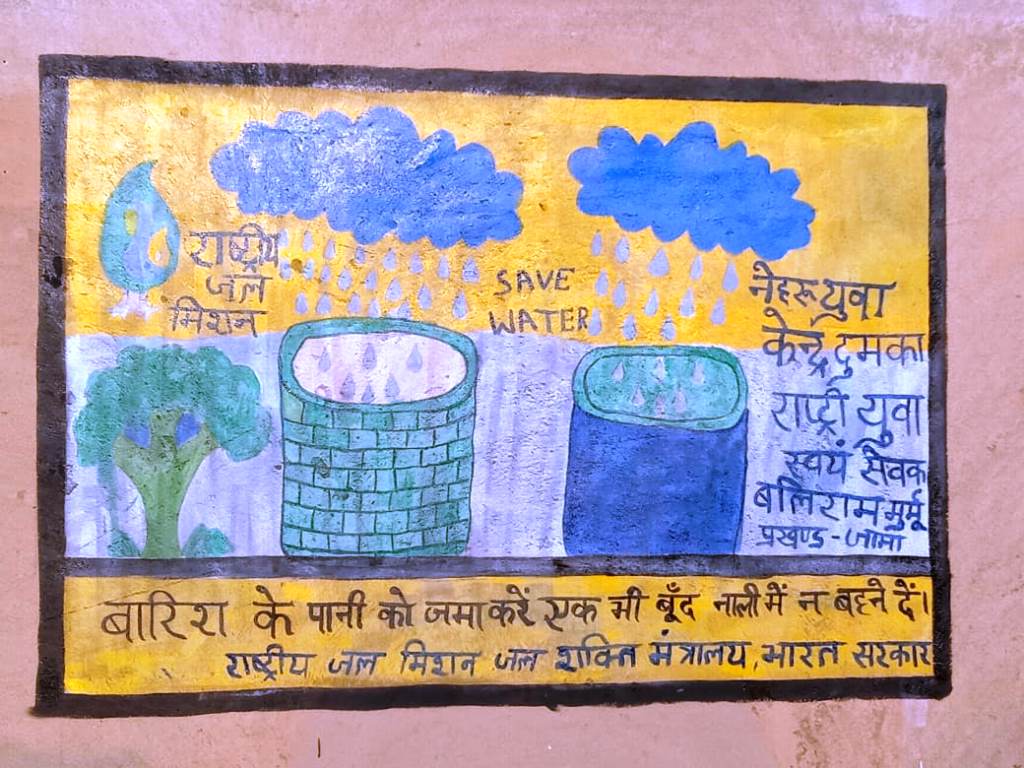 राष्ट्रीय
जल
मिशन
SAVE
WATER
नेहरू युवा
केन्द्र दुमका
राष्ट्री युवा
स्वयं सेवक
बलिराम मुर्मू
प्रखण्ड - जामा
बारिश के पानी को जमा करें एक भी बूँद नाली में न बहने दें।
राष्ट्रीय जल मिशन जल शक्ति मंत्रालय, भारत सरकार